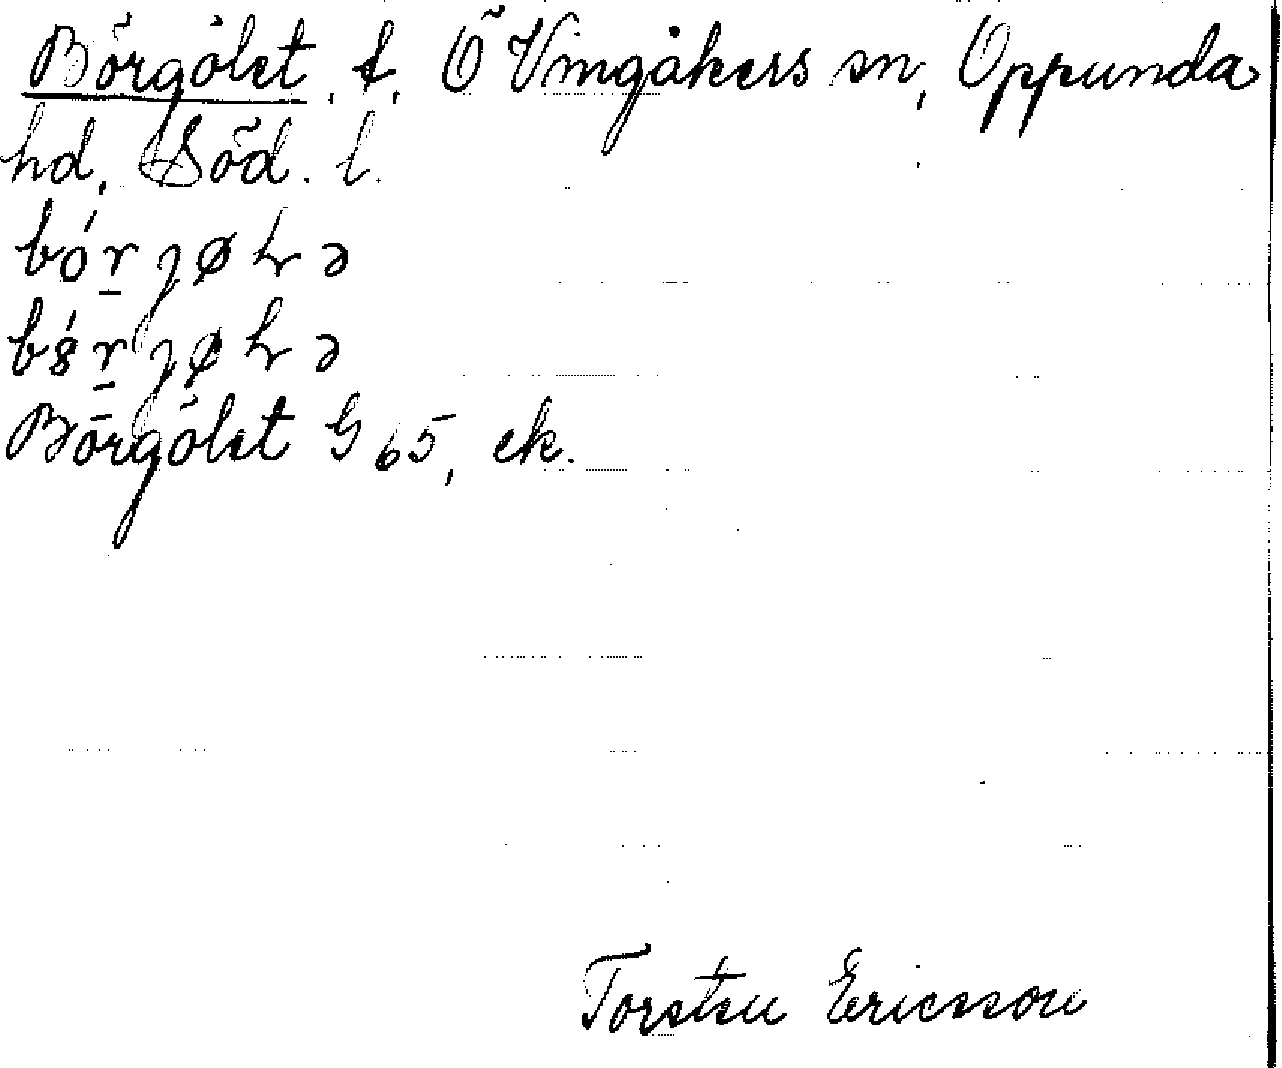 Börgölet, t, Ö Vingåkers sn, Oppunda
hd, Söd. l.
Börgölet G 65, ek.
Torsten Ericsson